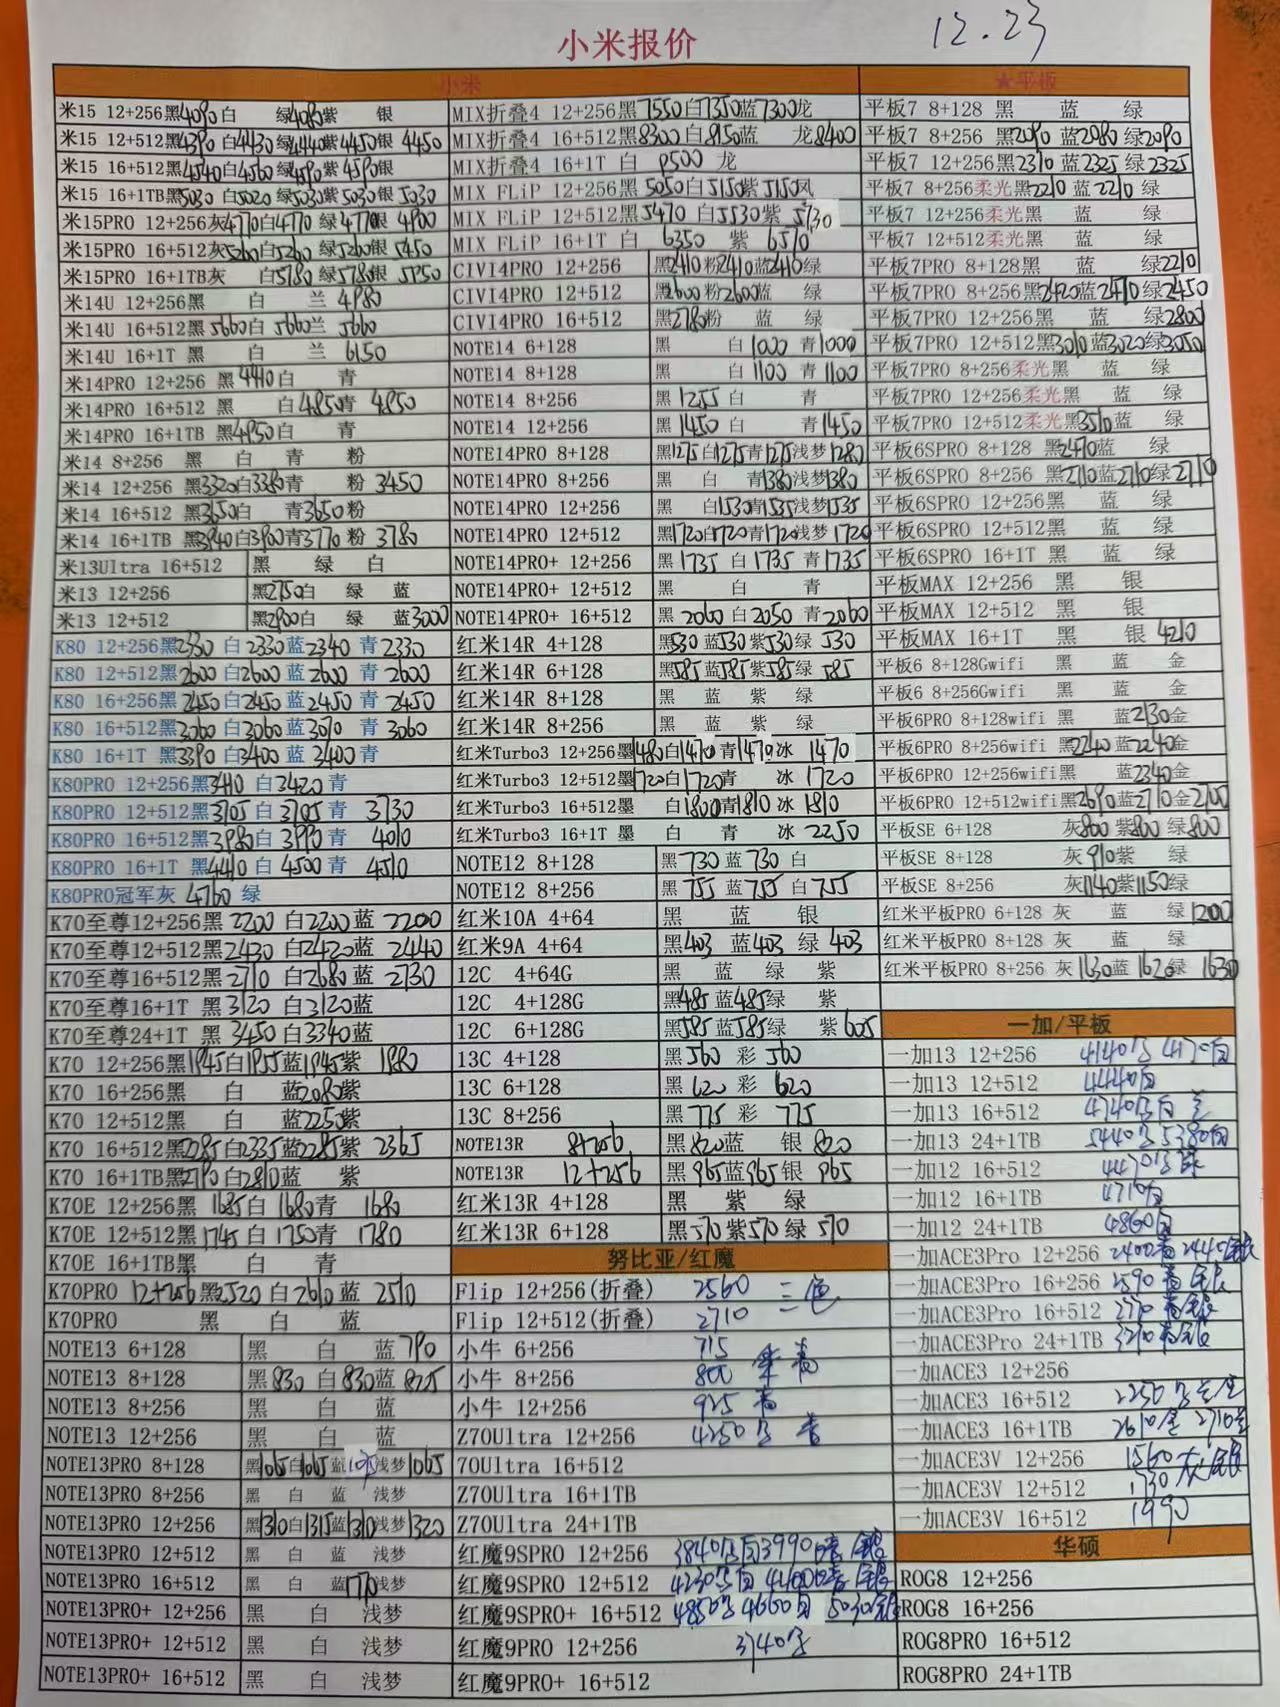 12.23
小米报价
小米
米15 12+256黑4090白 绿4080紫 银
米15 12+512黑4390白4430绿4440紫4450银 4450
米15 16+512黑4540白4560绿4590紫4590银
米15 16+1TB黑5030白5020绿5030紫5030银 5030
米15PRO 12+256灰4770白4770绿4770银 4900
米15PRO 16+512灰5260白5260绿5260银 5450
米15PRO 16+1TB灰 白5780绿5780银 5950
米14U 12+256黑 白 兰 4980
米14U 16+512黑5660白 5660兰 5660
米14U 16+1T 黑 白 兰 6150
米14PRO 12+256 黑4410白 青
米14PRO 16+512 黑 白4850青 4850
米14PRO 16+1TB 黑4950白 青
米14 8+256 黑 白 青 粉
米14 12+256 黑3320白3380青 粉 3450
米14 16+512 黑3650白 青3650粉
米14 16+1TB 黑3940白3900青3770粉 3780
米13Ultra 16+512 黑 绿 白
米13 12+256 黑2750白 绿 蓝
米13 12+512 黑2900白 绿 蓝3000
K80 12+256黑2330 白2330蓝2340 青2330
K80 12+512黑2600白2600 蓝2600 青2600
K80 16+256黑2450白2450 蓝2450 青2450
K80 16+512黑3060 白3060蓝3070 青 3060
K80 16+1T 黑3390 白3400 蓝3400青
K80PRO 12+256黑3410 白3420 青
K80PRO 12+512黑3705 白3705 青 3730
K80PRO 16+512黑3980白3990青 4010
K80PRO 16+1T 黑4410 白 4500 青 4510
K80PRO冠军灰 4760 绿
K70至尊12+256黑 2200 白2200蓝 2200
K70至尊12+512黑2430 白2420蓝 2440
K70至尊16+512黑2710 白2680蓝 2730
K70至尊16+1T 黑3120 白3120蓝
K70至尊24+1T 黑 3450 白3340蓝
K70 12+256黑1945白1955蓝1945紫 1980
K70 16+256黑 白 蓝2080紫
K70 12+512黑 白 蓝2250紫
K70 16+512黑2285白2335蓝2285紫 2365
K70 16+1TB黑2790白2810蓝 紫
K70E 12+256黑 1685白 1680青 1680
K70E 12+512黑 1745 白 1750青 1780
K70E 16+1TB黑 白 青
K70PRO 12+256 黑2520 白2610 蓝 2510
K70PRO 黑 白 蓝
NOTE13 6+128 黑 白 蓝790
NOTE13 8+128 黑830 白830蓝825
NOTE13 8+256 黑 白 蓝
NOTE13 12+256 黑 白 蓝
NOTE13PRO 8+128 黑1065白1065蓝 浅梦1065
NOTE13PRO 8+256 黑 白 蓝 浅梦
NOTE13PRO 12+256 黑1310白1315蓝1310浅梦1320
NOTE13PRO 12+512 黑 白 蓝 浅梦
NOTE13PRO 16+512 黑 白 蓝1770浅梦
NOTE13PRO+ 12+256 黑 白 浅梦
NOTE13PRO+ 12+512 黑 白 浅梦
NOTE13PRO+ 16+512 黑 白 浅梦
MIX折叠4 12+256黑7550白7350蓝7300龙
MIX折叠4 16+512黑8300白8150蓝 龙8400
MIX折叠4 16+1T 白 龙
MIX FLiP 12+256黑 5050白5150紫5150凤
MIX FLiP 12+512黑5470 白5530紫 5730
MIX FLiP 16+1T 白 6350 紫 6570
CIVI4PRO 12+256 黑2410粉2410蓝2410绿
CIVI4PRO 12+512 黑2600粉2600蓝 绿
CIVI4PRO 16+512 黑2780粉 蓝 绿
NOTE14 6+128 黑 白1000 青1000
NOTE14 8+128 黑 白1100 青1100
NOTE14 8+256 黑1255 白 青
NOTE14 12+256 黑1450 白 青1450
NOTE14PRO 8+128 黑1275白1275青1275浅梦1280
NOTE14PRO 8+256 黑 白 青1380浅梦1380
NOTE14PRO 12+256 黑 白1530青1535浅梦1535
NOTE14PRO 12+512 黑1720白1720青1720浅梦 1720
NOTE14PRO+ 12+256 黑1735 白1735 青1735
NOTE14PRO+ 12+512 黑 白 青
NOTE14PRO+ 16+512 黑2060 白2050 青2060
红米14R 4+128 黑530 蓝530紫530绿 530
红米14R 6+128 黑585蓝585紫585绿 585
红米14R 8+128 黑 蓝 紫 绿
红米14R 8+256 黑 蓝 紫 绿
红米Turbo3 12+256墨1480白1470青1470冰 1470
红米Turbo3 12+512墨1720白1720青 冰 1720
红米Turbo3 16+512墨 白1800青1810 冰 1810
红米Turbo3 16+1T 墨 白 青 冰 2250
NOTE12 8+128 黑730 蓝730 白
NOTE12 8+256 黑755 蓝755 白755
红米10A 4+64 黑 蓝 银
红米9A 4+64 黑403 蓝403 绿 403
12C 4+64G 黑 蓝 绿 紫
12C 4+128G 黑485 蓝485绿 紫
12C 6+128G 黑585蓝585绿 紫605
13C 4+128 黑560 彩 560
13C 6+128 黑620 彩 620
13C 8+256 黑775 彩 775
NOTE13R 8+256 黑820蓝 银820
NOTE13R 12+256 黑965蓝965银 965
红米13R 4+128 黑 紫 绿
红米13R 6+128 黑570紫570 绿 570
努比亚/红魔
Flip 12+256(折叠) 2560 三色
Flip 12+512(折叠) 2710
小牛 6+256 715
小牛 8+256 800 青
小牛 12+256 925 青
Z70Ultra 12+256 4250 青
70Ultra 16+512
Z70Ultra 16+1TB
Z70Ultra 24+1TB
红魔9SPRO 12+256 3840 白3990 银
红魔9SPRO 12+512 4230 白 4400 银
红魔9SPRO+ 16+512 4850 4660白 5030银
红魔9PRO 12+256 3740
红魔9PRO+ 16+512
★平板
平板7 8+128 黑 蓝 绿
平板7 8+256 黑2090 蓝2080 绿2090
平板7 12+256黑2310 蓝2325 绿2325
平板7 8+256柔光黑2210 蓝2210 绿
平板7 12+256柔光黑 蓝 绿
平板7 12+512柔光黑 蓝 绿
平板7PRO 8+128黑 蓝 绿2210
平板7PRO 8+256黑2420蓝2410绿2450
平板7PRO 12+256黑 蓝 绿2800
平板7PRO 12+512黑3010蓝3020绿3050
平板7PRO 8+256柔光黑 蓝 绿
平板7PRO 12+256柔光黑 蓝 绿
平板7PRO 12+512柔光黑3510蓝 绿
平板6SPRO 8+128 黑2470蓝 绿
平板6SPRO 8+256 黑2710蓝2710绿2710
平板6SPRO 12+256黑 蓝 绿
平板6SPRO 12+512黑 蓝 绿
平板6SPRO 16+1T黑 蓝 绿
平板MAX 12+256 黑 银
平板MAX 12+512 黑 银
平板MAX 16+1T 黑 银 4210
平板6 8+128Gwifi 黑 蓝 金
平板6 8+256Gwifi 黑 蓝 金
平板6PRO 8+128wifi 黑 蓝2130金
平板6PRO 8+256wifi 黑2240蓝2240金
平板6PRO 12+256wifi黑 蓝2340金
平板6PRO 12+512wifi黑2690蓝2710金2705
平板SE 6+128 灰800 紫800 绿800
平板SE 8+128 灰910紫 绿
平板SE 8+256 灰1140紫1150绿
红米平板PRO 6+128 灰 蓝 绿1200
红米平板PRO 8+128 灰 蓝 绿
红米平板PRO 8+256 灰1630蓝 1620绿 1630
一加/平板
一加13 12+256 4140 白
一加13 12+512 4440白
一加13 16+512 4740 白
一加13 24+1TB 5440 5380白
一加12 16+512 4470
一加12 16+1TB 4710白
一加12 24+1TB 4860白
一加ACE3Pro 12+256 2400青 2445银
一加ACE3Pro 16+256 2590青 银
一加ACE3Pro 16+512 2770青银
一加ACE3Pro 24+1TB 3210青银
一加ACE3 12+256
一加ACE3 16+512 2250
一加ACE3 16+1TB 2610金 2710
一加ACE3V 12+256 1560灰 银
一加ACE3V 12+512 1730
一加ACE3V 16+512 1990
华硕
ROG8 12+256
ROG8 16+256
ROG8PRO 16+512
ROG8PRO 24+1TB